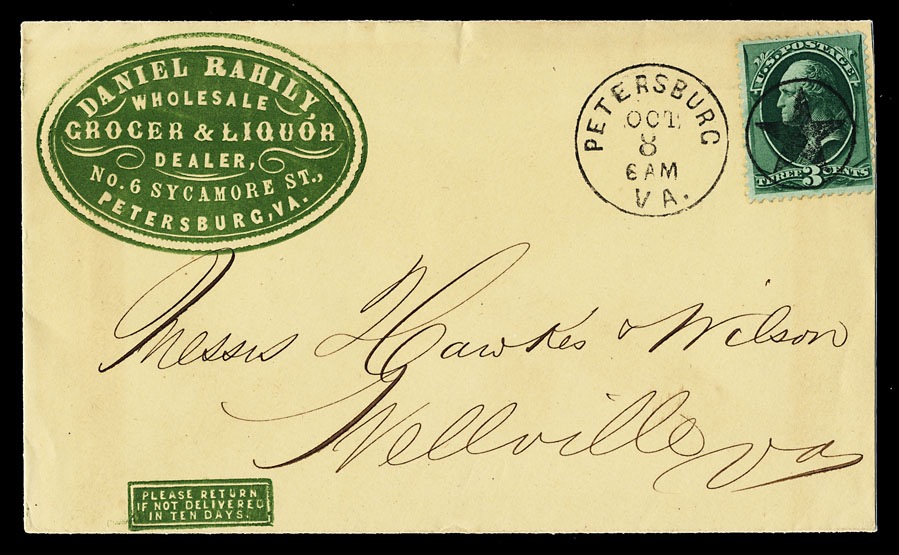 DANIEL RAHILY
WHOLESALE
GROCER & LIQUOR
DEALER,
No. 6 SYCAMORE ST.,
PETERSBURG, VA.
PETERSBURG
OCT
8
6 AM
VA.
U.S. POSTAGE
THREE 3 CENTS
Messrs Hawkes & Wilson
Wellville Va
PLEASE RETURN
IF NOT DELIVERED
IN TEN DAYS.